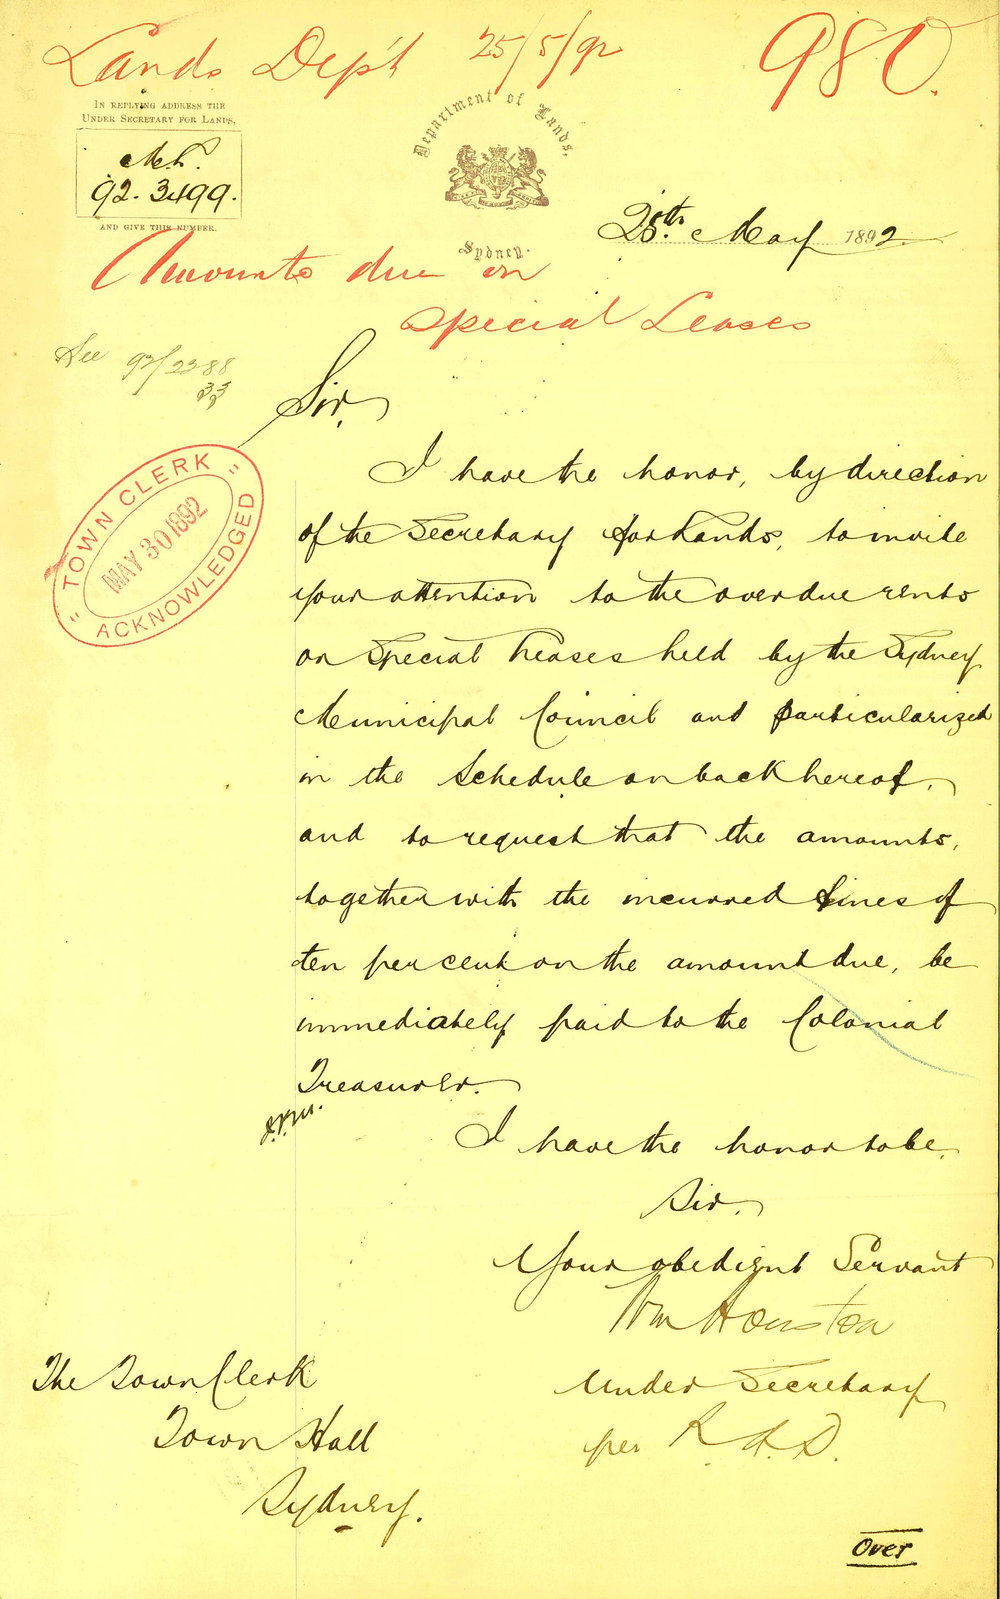 Lands Dep't 25/5/92
980.
IN REPLYING ADDRESS THE
UNDER SECRETARY FOR LANDS,
92. 3499.
AND GIVE THIS NUMBER.
Department of Lands,
Sydney.
25th. May 1892
Amounts due on
Special Leases
See 92/2288
33
Sir,
"TOWN CLERK"
MAY 30 1892
ACKNOWLEDGED
I have the honor, by direction
of the Secretary for Lands, to invite
your attention to the overdue rents
on Special Leases held by the Sydney
Municipal Council and particularized
in the Schedule on back hereof,
and to request that the amounts,
together with the incurred fines of
ten per cent on the amount due, be
immediately paid to the Colonial
Treasurer.
I have the honor to be,
Sir,
Your obedient Servant
Wm Houston
Under Secretary
per R.A.D.
The Town Clerk
Town Hall
Sydney.
Over